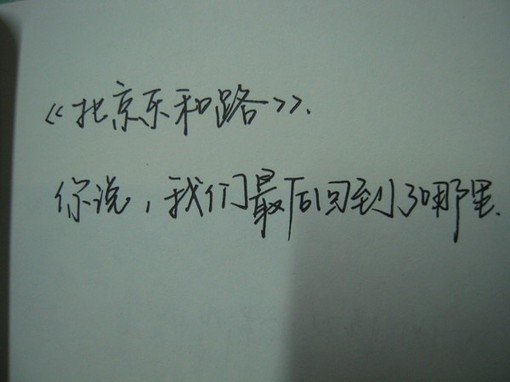 《北京乐和路》.
你说，我们最后回到了哪里.